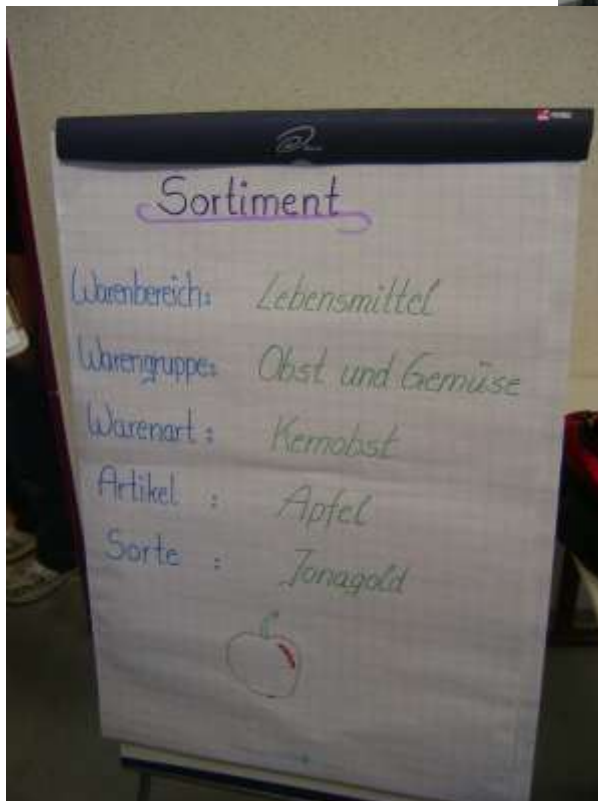 Sortiment
Warenbereich: Lebensmittel
Warengruppe: Obst und Gemüse
Warenart: Kernobst
Artikel : Apfel
Sorte : Jonagold